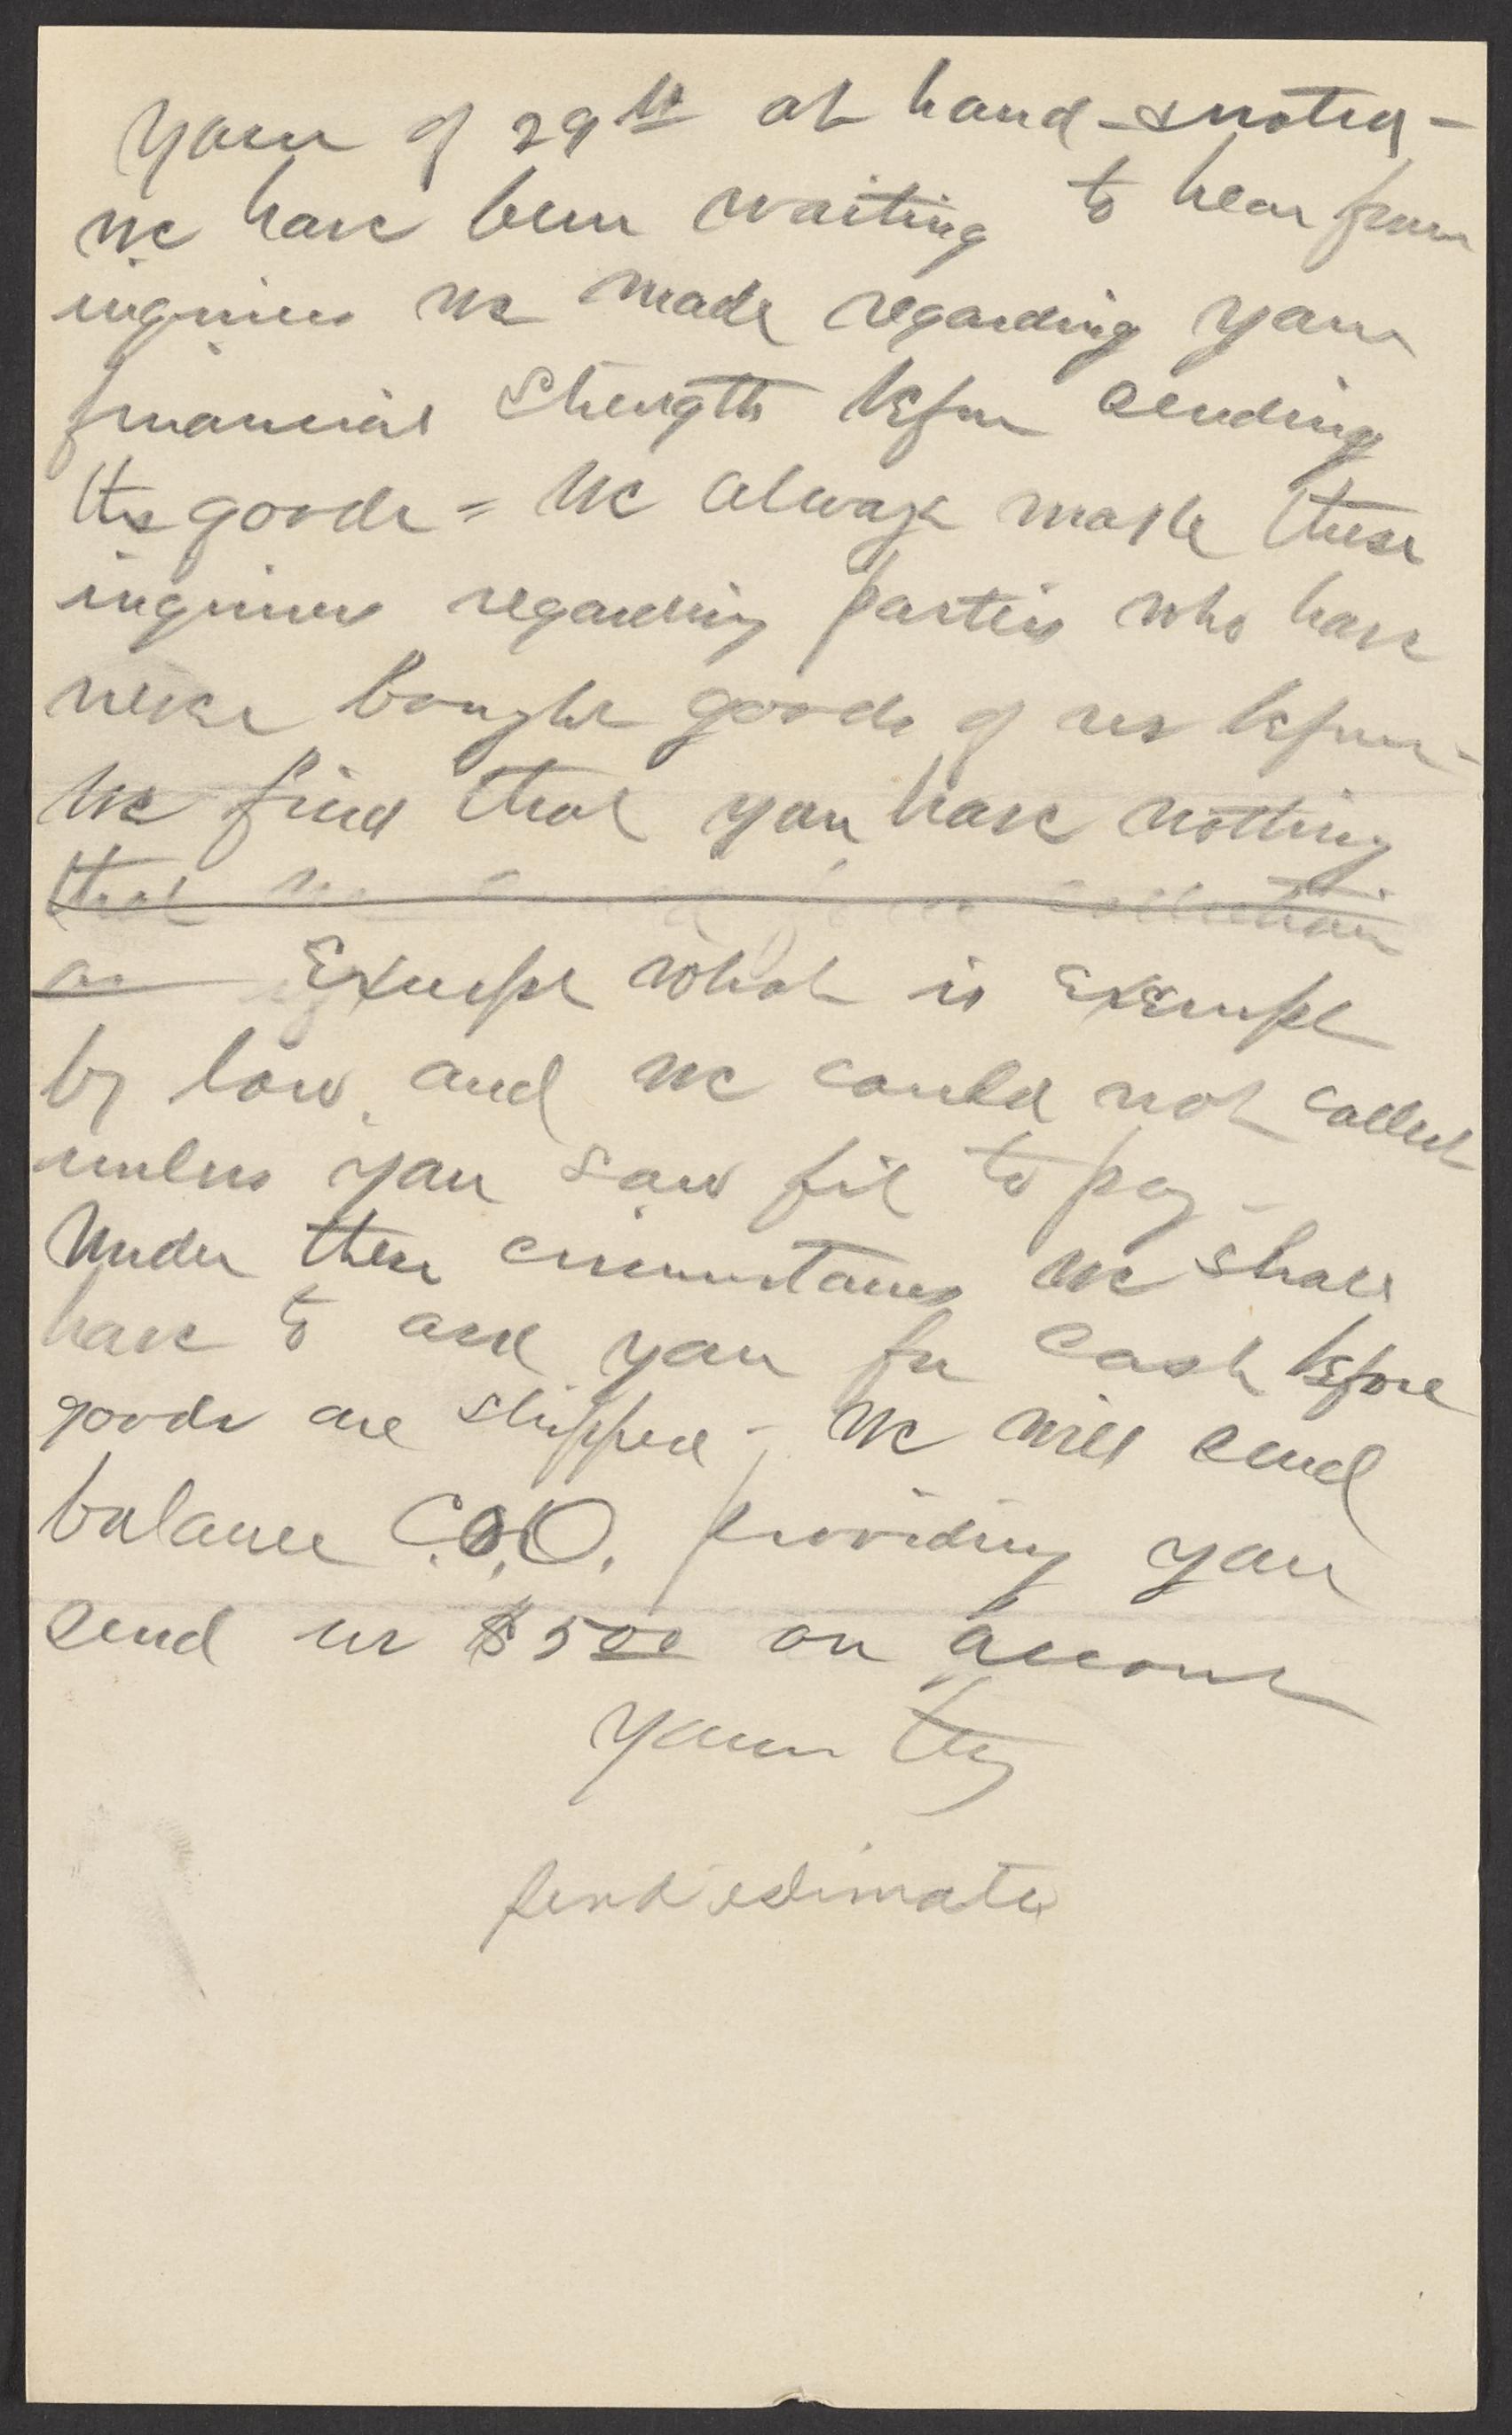 Yours of 29th at hand & noted -
We have been waiting to hear from
inquiries we made regarding your
financial strength before sending
the goods = We always make these
inquiries regarding parties who have
never bought goods of us before -
We find that you have nothing
that we collection
as Exempt what is exempt
by law, and we could not collect
unless you saw fit to pay -
Under these circumstances we shall
have to ask you for cash before
goods are shipped - We will send
balance C.O.D. providing you
send us $500 on account
Yours try
send estimate